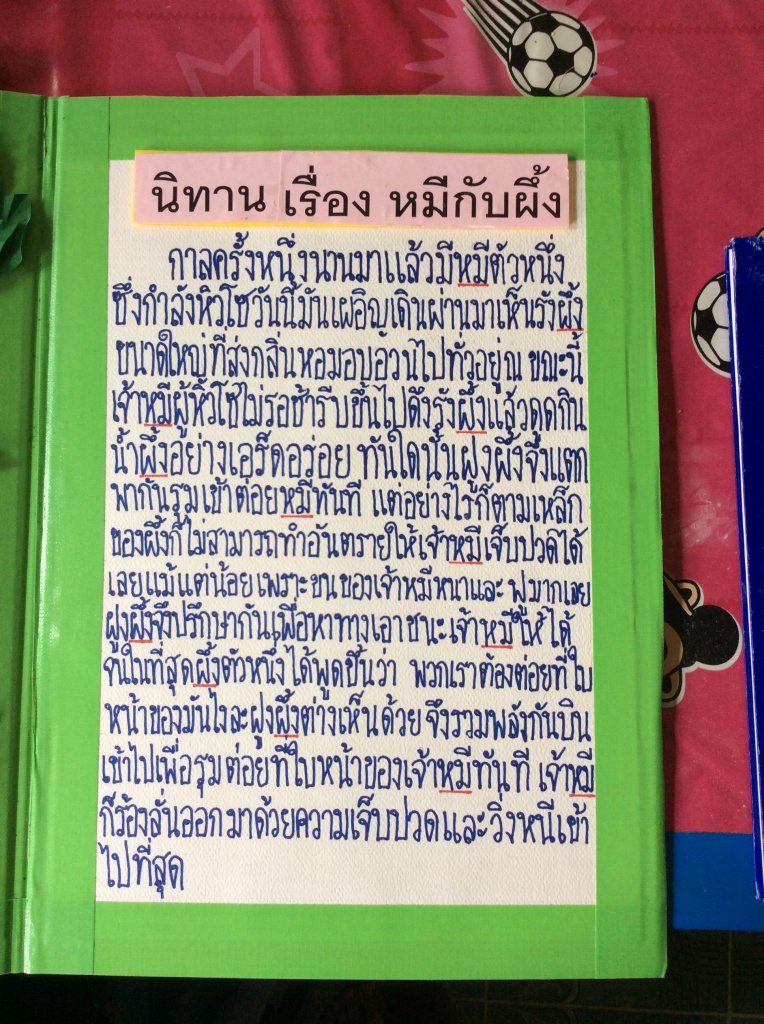 นิทาน เรื่อง หมีกับผึ้ง
กาลครั้งหนึ่งนานมาแล้วมีหมีตัวหนึ่ง
ซึ่งกำลังหิวโซวันนี้มันเผอิญเดินผ่านมาเห็นรังผึ้ง
ขนาดใหญ่ที่ส่งกลิ่นหอมอบอวนไปทั่วอยู่ณ ขณะนี้
เจ้าหมีผู้หิวโซไม่รอช้ารีบขึ้นไปดึงรังผึ้งแล้วดูดกิน
น้ำผึ้งอย่างเอร็ดอร่อย ทันใดนั้นฝูงผึ้งจึงแตก
พากันรุมเข้าต่อยหมีทันที แต่อย่างไรก็ตามเหล็ก
ของผึ้งก็ไม่สามารถทำอันตรายให้เจ้าหมีเจ็บปวดได้
เลยแม้แต่น้อยเพราะขนของเจ้าหมีหนาและ ฟูมากเลย
ฝูงผึ้งจึงปรึกษากันเพื่อหาทางเอาชนะเจ้าหมีให้ได้
จนในที่สุดผึ้งตัวหนึ่งได้พูดขึ้นว่า พวกเราต้องต่อยที่ใบ
หน้าของมันไงละฝูงผึ้งต่างเห็นด้วย จึงรวมพลังกันบิน
เข้าไปเพื่อรุมต่อยที่ใบหน้าของเจ้าหมีทันที เจ้าหมี
ก็ร้องลั่นออกมาด้วยความเจ็บปวดและวิ่งหนีเข้า
ไปที่สุด